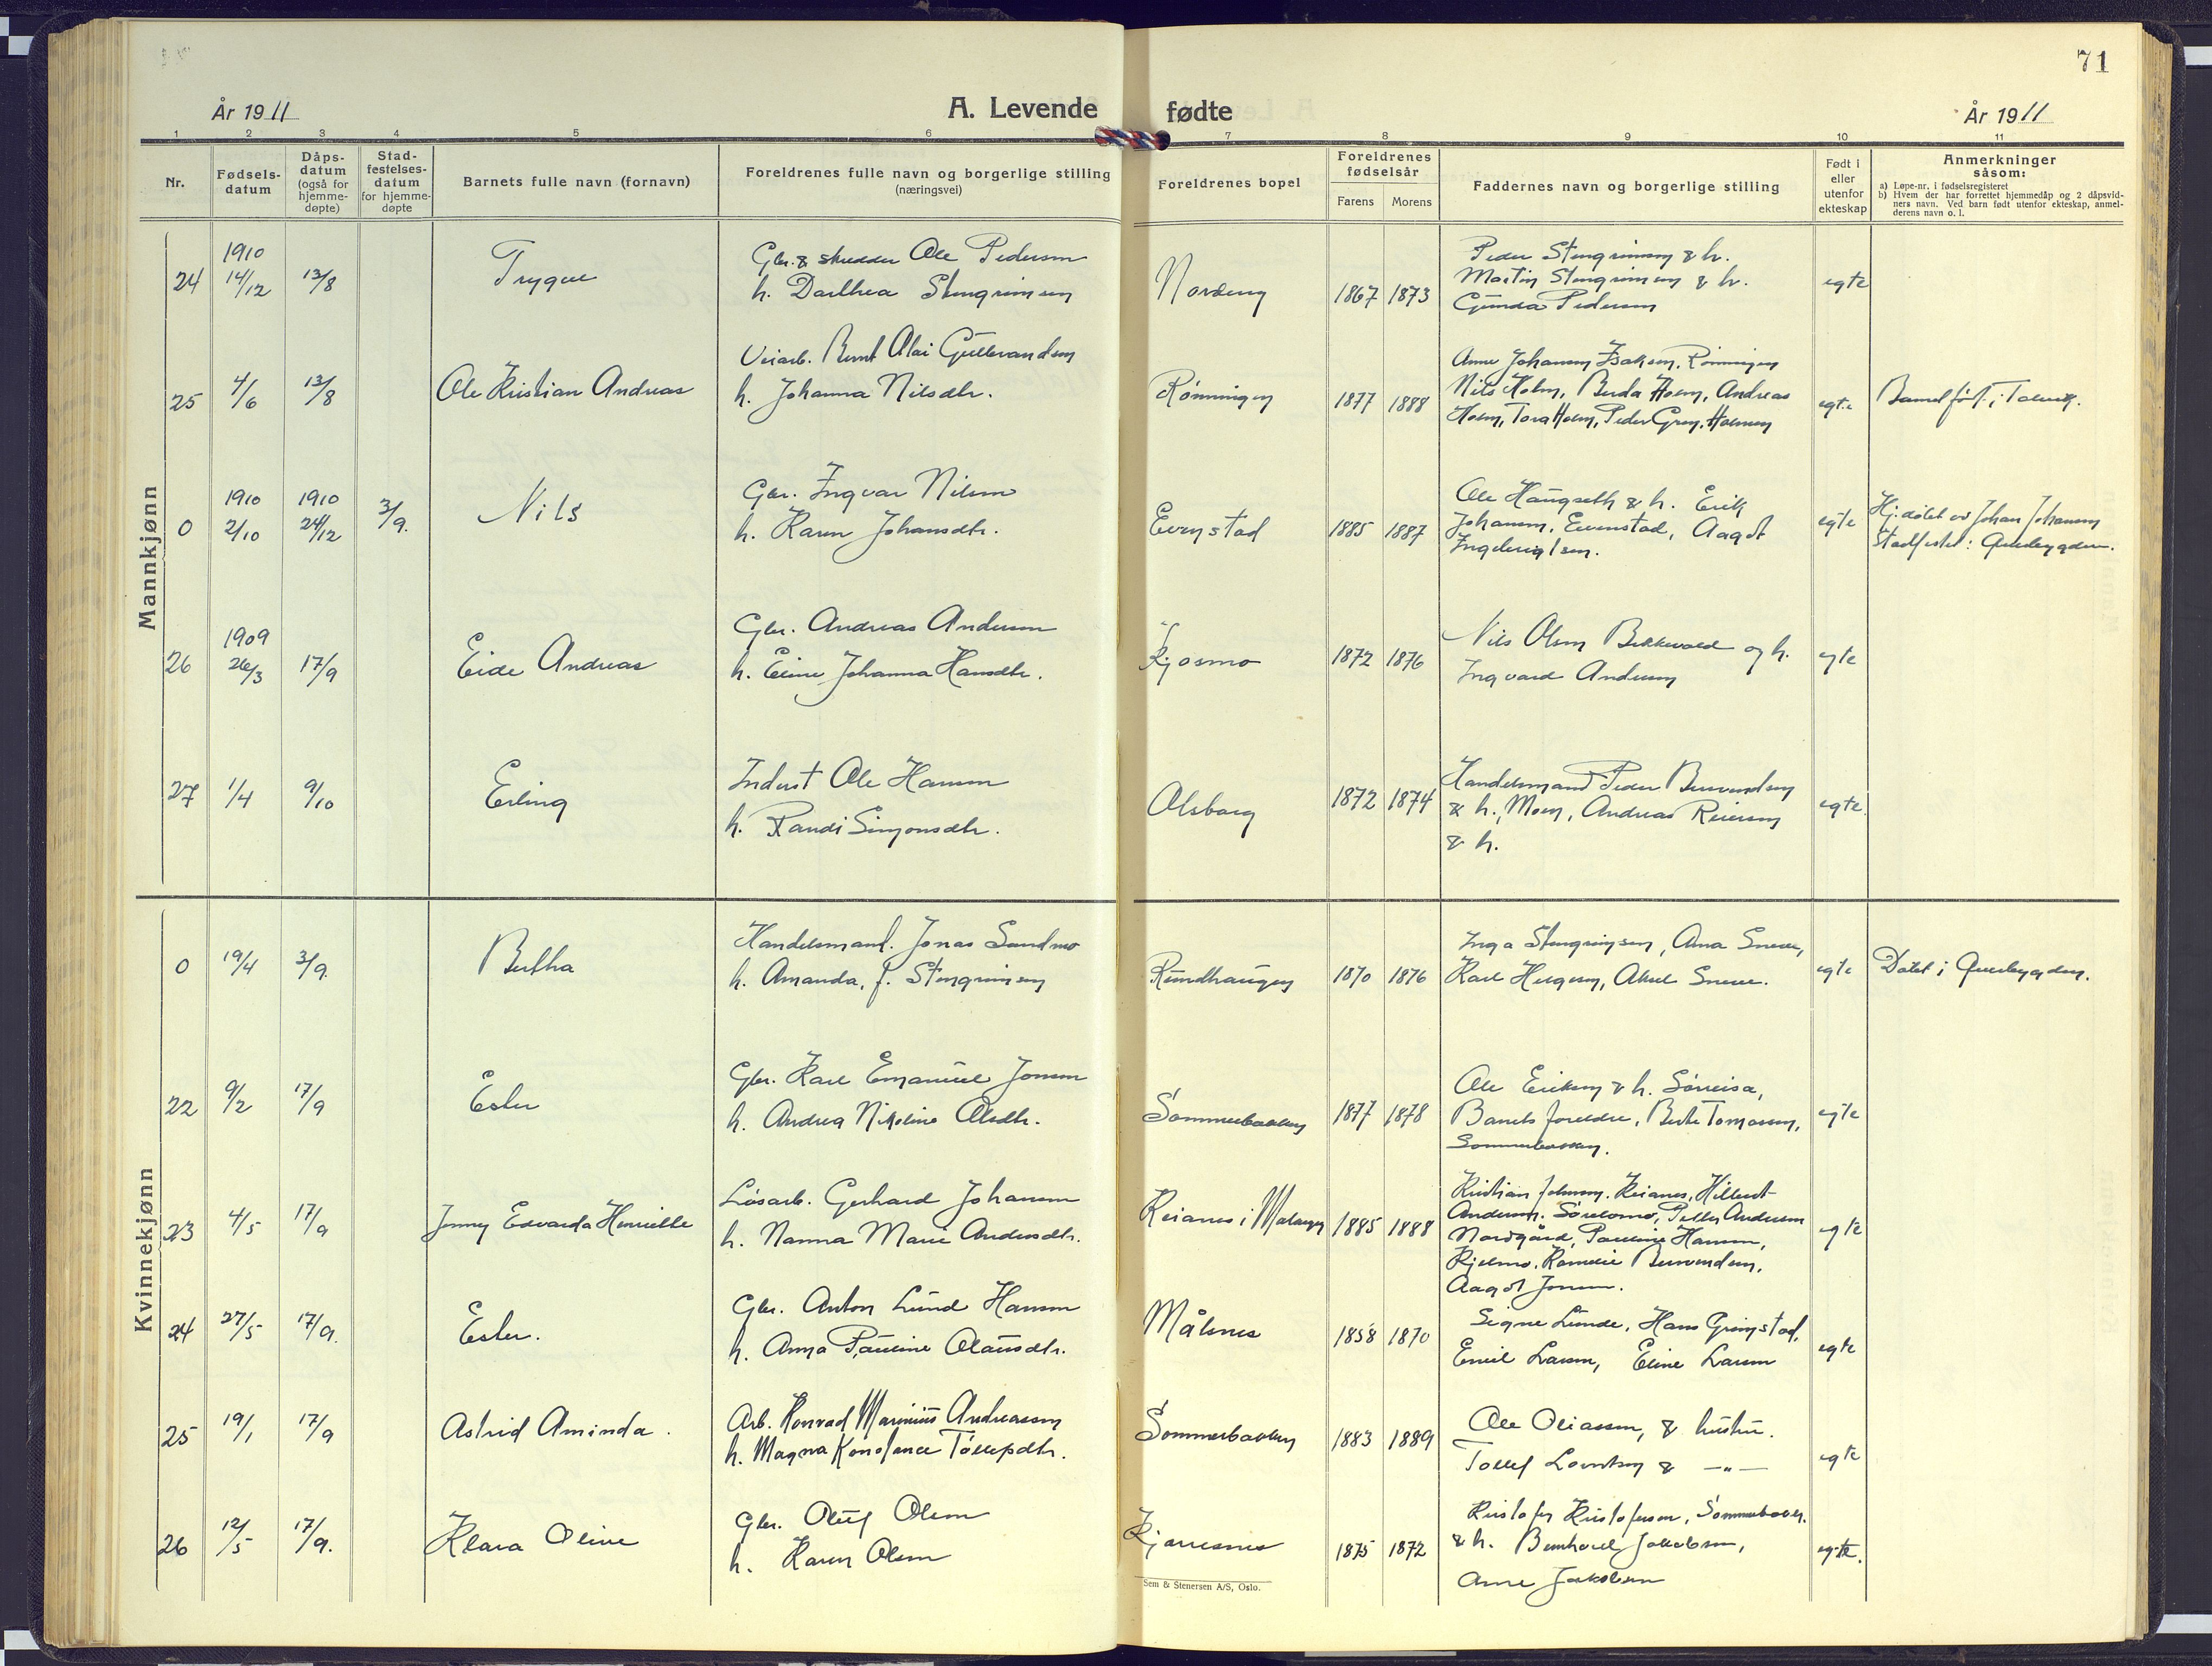 71
År 1911
A. Levende
fødte
År 1911
1 2 3 4 5 6 7 8 9 10 11
Nr.
Fødsels-
datum
Dåps-
datum
(også for
hjemme-
døpte)
Stad-
festelses-
datum
for hjemme-
døpte
Barnets fulle navn (fornavn)
Foreldrenes fulle navn og borgerlige stilling
(næringsvei)
Foreldrenes bopel
Foreldrenes
fødselsår
Farens Morens
Faddernes navn og borgerlige stilling
Født i
eller
utenfor
ekteskap
Anmerkninger
såsom:
a) Løpe-nr. i fødselsregisteret
b) Hvem der har forrettet hjemmedåp og 2 dåpsvid-
ners navn. Ved barn født utenfor ekteskap, anmel-
derens navn o. l.
Mannkjønn
24
1910
14/12
13/8
Trygve
Gbr. & skredder Ole Pedersen
h. Dorthea Stengrimsen
Nordeng
1867 1873
Peder Stengrimsen & h.
Martin Stengrimsen & h.
Gunda Pedersen
egte
25
4/6
13/8
Ole Kristian Andreas
Veiarb. Bernt Olai Gulbrandsen
h. Johanna Nilsdtr.
Rønningen
1877 1888
Anne Johansen Isaksen, Rønningen
Nils Holm, Berda Hoem, Andreas
Hoem, Tora Hoem, Peder Grøn, Holmen
egte
Barnet født i
0
1910
2/10
1910
24/12
3/9.
Nils
Gbr. Ingvar Nilsen
h. Karen Johansdtr.
Evenstad
1885 1887
Ole Haugseth & h. Erik
Johansen, Evenstad, Aagot
Ingebrigtsen.
egte
Hj.døbt av Johan Johansen
Stadfestet: Øverbygden.
26
1909
26/3
17/9
Eide Andreas
Gbr. Andreas Andersen
h. Eline Johanna Hansdtr.
Kjosmo
1872 1876
Nils Olsen Bekkevold og h.
Ingvard Andersen
egte
27
1/4
9/10
Erling
Indust Ole Hansen
h. Randi Simonsdtr.
Olsborg
1872 1874
Handelsmand Peder Bernendsen
& h., Moen, Andreas Reiersen
& h.
egte.
Kvinnekjønn
0
19/4
3/9.
Bertha
Handelsmand. Jonas Sandmo
h. Amanda, f. Stengrimsen
Rundhaugen
1870 1876
Inga Stengrimsen, Anna Sneve,
Karl Helgesen, Aksel Sneve.
egte
Døbt i Øverbygden.
22
9/2
17/9
Ester
Gbr. Karl Emanuel Jonsen
h. Andrea Nikoline Olsdtr.
Sommerbakken
1877 1878
Ole Eriksen & h. Sørreisa,
Barnets foreldre, Berte Tomassen,
Sommerbakken.
egte
23
4/5
17/9
Jenny Edvarda Henriette
Løsarb. Gerhard Johansen
h. Nanna Marie Andersdtr.
Keianes i Malangen
1885 1888
Kristian Johnsen. Keianes, Hilbert
Andersen. Petter Andersen
Nordgård, Pauline Hansen,
Kjelmo,
Aagot Jonsen.
egte
24
27/5
17/9.
Ester.
Gbr. Anton Lund Hansen
h. Anna Pauline Olausdtr.
Målsnes
1858 1870
Signe Lunde, Hans Grimstad,
Emil Larsen, Eline Larsen
egte
25
19/1
17/9
Astrid Aminda.
Arb. Konrad Marinius Andreassen
h. Magna Konstance Tollefsdtr.
Sommerbakken
1883 1889
Ole Oliassen, & hustru.
Tollef Lorentsen & —"—
egte
26
12/5
17/9.
Klara Oline
Gbr. Oluf Olsen
h. Karen Olsen
Kjærresnes
1875 1872
Kristofer Kristofersen, Sommerbakk.
& h. Bernhard Jakobsen,
Arne Jakobsen
egte.
Sem & Stenersen A/S, Oslo.